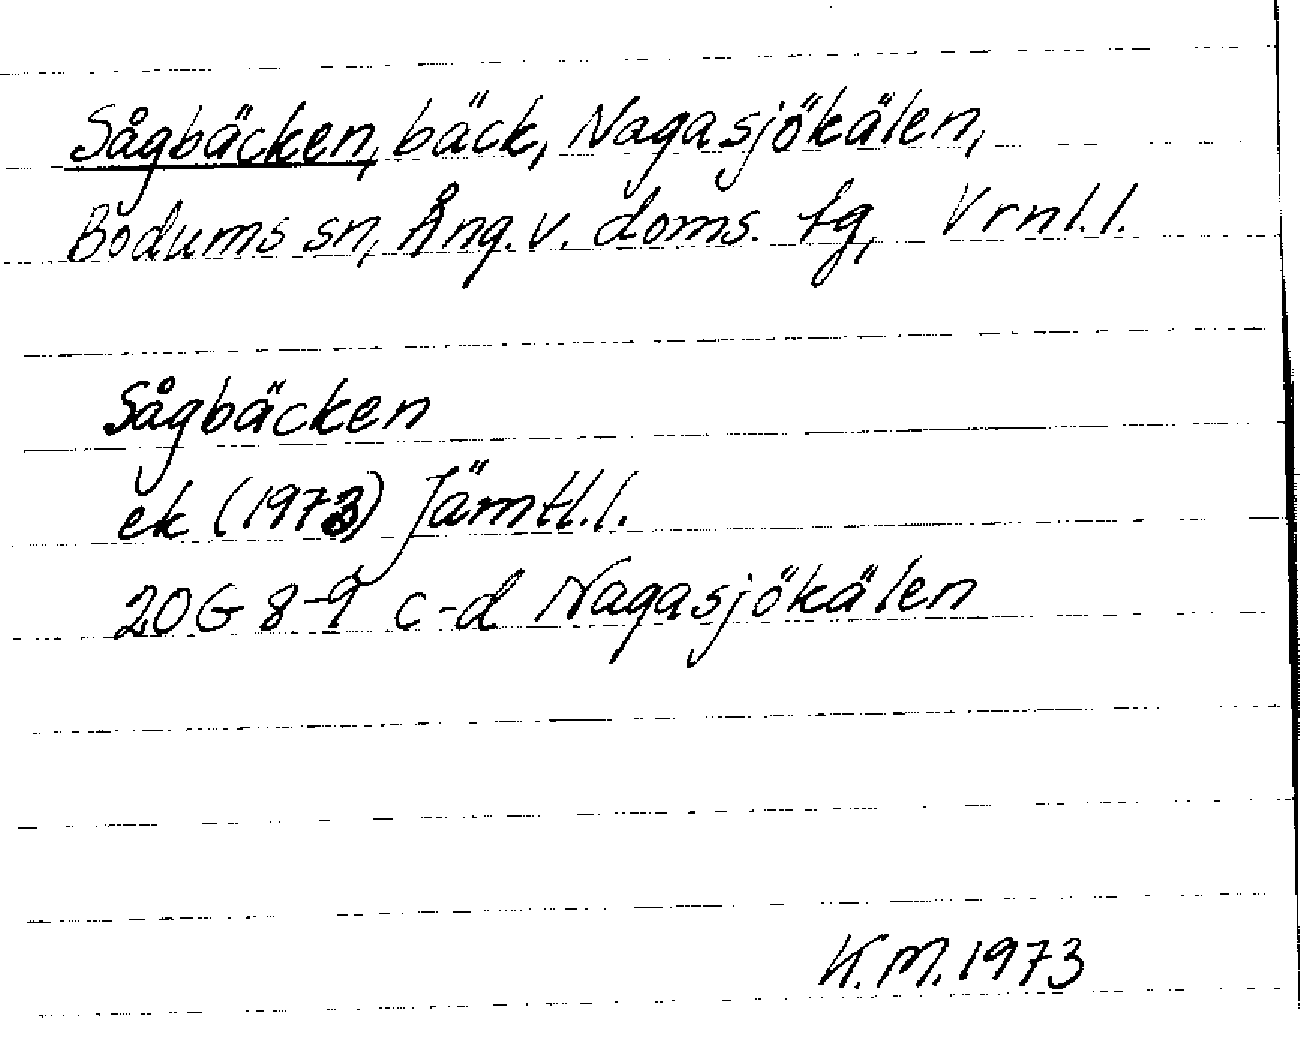 Sågbäcken, bäck, Nagasjökälen,
Bodums sn, Ång. v. doms. fg, Vrnl.l.
Sågbäcken
ek (1973) Jämtl.l.
20G 8-9 c-d Nagasjökälen
K.M. 1973